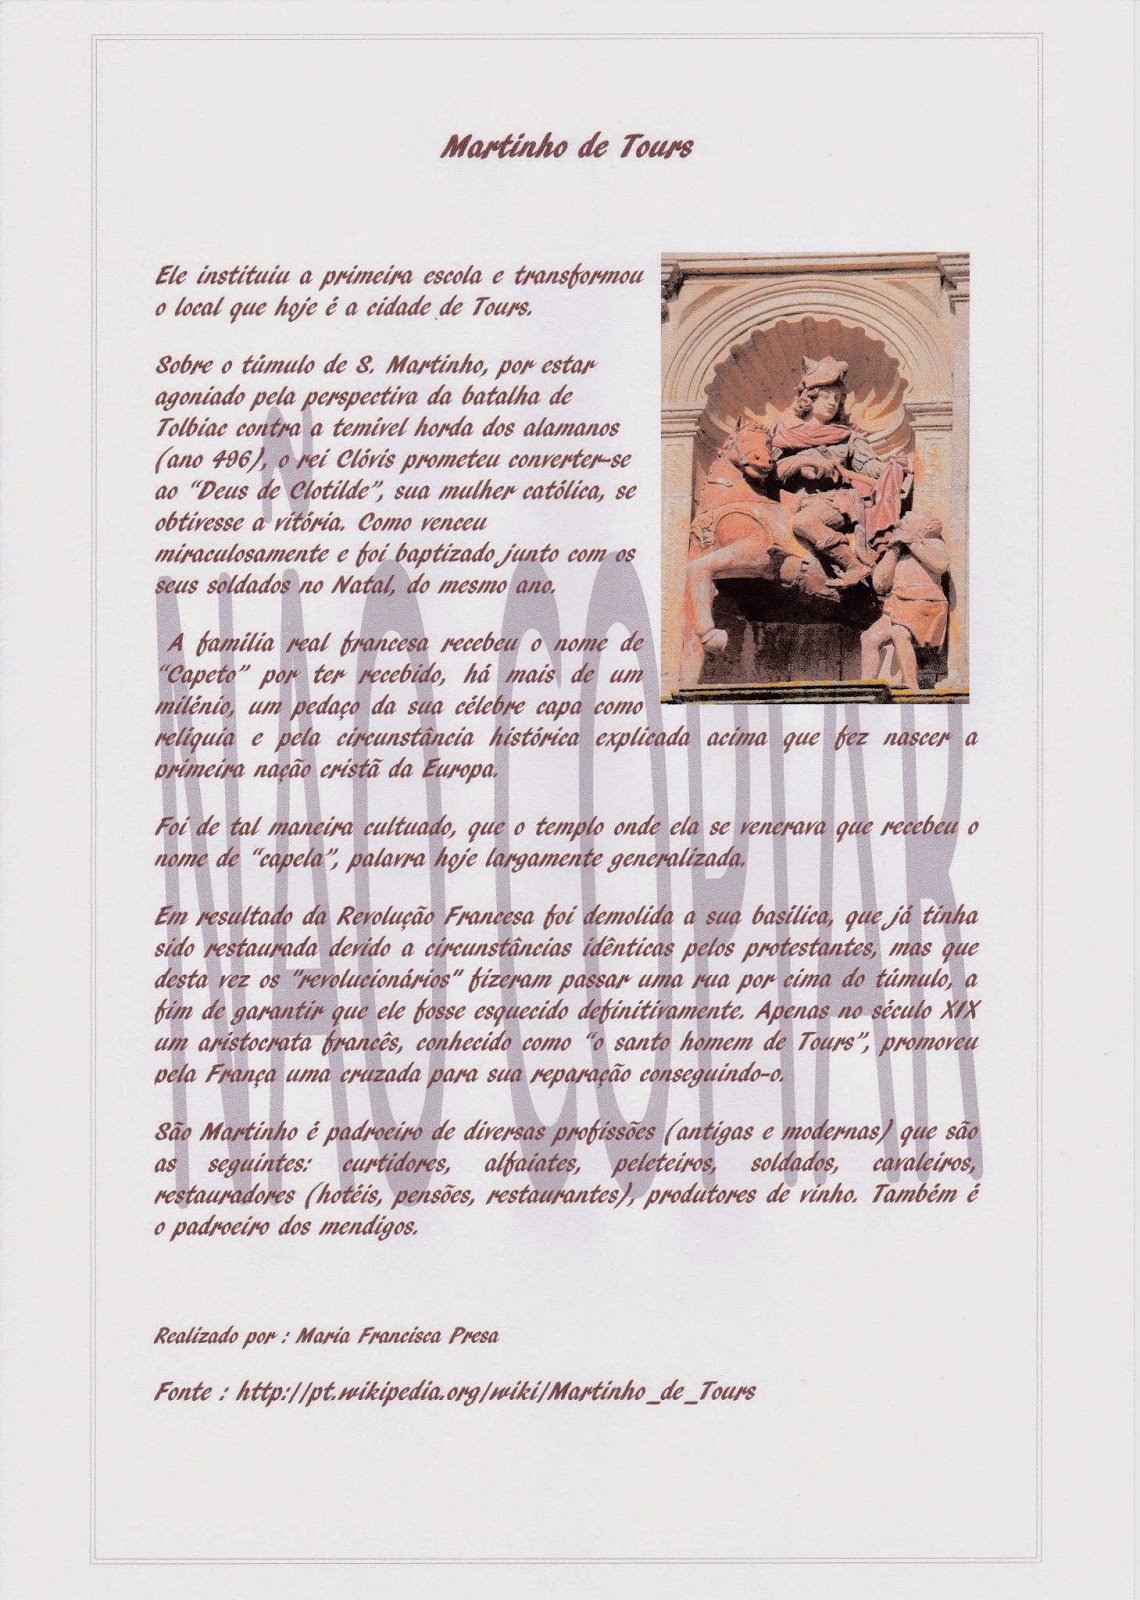 Martinho de Tours
Ele instituiu a primeira escola e transformou
o local que hoje é a cidade de Tours.
Sobre o túmulo de S. Martinho, por estar
agoniado pela perspectiva da batalha de
Tolbiac contra a temível horda dos alamanos
(ano 496), o rei Clóvis prometeu converter-se
ao “Deus de Clotilde”, sua mulher católica, se
obtivesse a vitória. Como venceu
miraculosamente e foi baptizado junto com os
seus soldados no Natal, do mesmo ano.
A família real francesa recebeu o nome de
“Capeto” por ter recebido, há mais de um
milénio, um pedaço da sua célebre capa como
relíquia e pela circunstância histórica explicada acima que fez nascer a
primeira nação cristã da Europa.
Foi de tal maneira cultuado, que o templo onde ela se venerava que recebeu o
nome de “capela”, palavra hoje largamente generalizada.
Em resultado da Revolução Francesa foi demolida a sua basílica, que já tinha
sido restaurada devido a circunstâncias idênticas pelos protestantes, mas que
desta vez os "revolucionários" fizeram passar uma rua por cima do túmulo, a
fim de garantir que ele fosse esquecido definitivamente. Apenas no século XIX
um aristocrata francês, conhecido como “o santo homem de Tours”, promoveu
pela França uma cruzada para sua reparação conseguindo-o.
São Martinho é padroeiro de diversas profissões (antigas e modernas) que são
as seguintes: curtidores, alfaiates, peleteiros, soldados, cavaleiros,
restauradores (hotéis, pensões, restaurantes), produtores de vinho. Também é
o padroeiro dos mendigos.
NÃO COPIAR
Realizado por : Maria Francisca Presa
Fonte : http://pt.wikipedia.org/wiki/Martinho_de_Tours